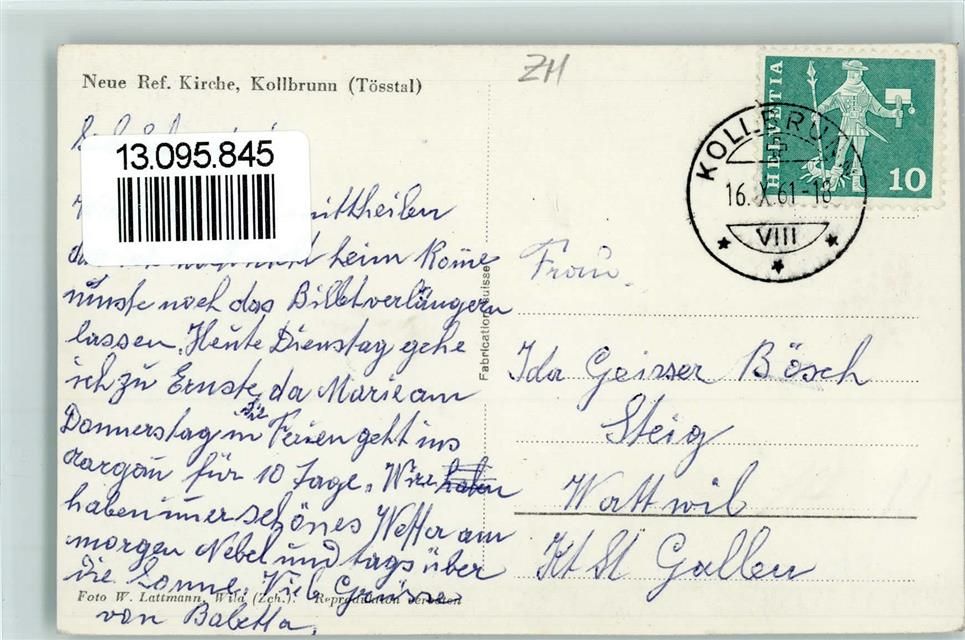 Neue Ref. Kirche, Kollbrunn (Tösstal)
ZH
HELVETIA
10
KOLLBRUNN
16.X.61-18
VIII
13.095.845
mittheilen
heim Kome
müsste noch das Billet verlängern
lassen. Heute Dienstag gehe
ich zu Ernste, da Marie am
Donnerstag in die Ferien geht ins
Aargau für 10 Tage. Wir haben
haben imer schönes Wetter am
morgen Nebel und tags über
die Sonne. Viele Grüsse
von Babetta.
Fabrication Suisse
Frau.
Ida Geisser Bösch
Steig
Wattwil
Kt St Gallen
Foto W. Lattmann, Wila (Zch.). Reproduktion verboten